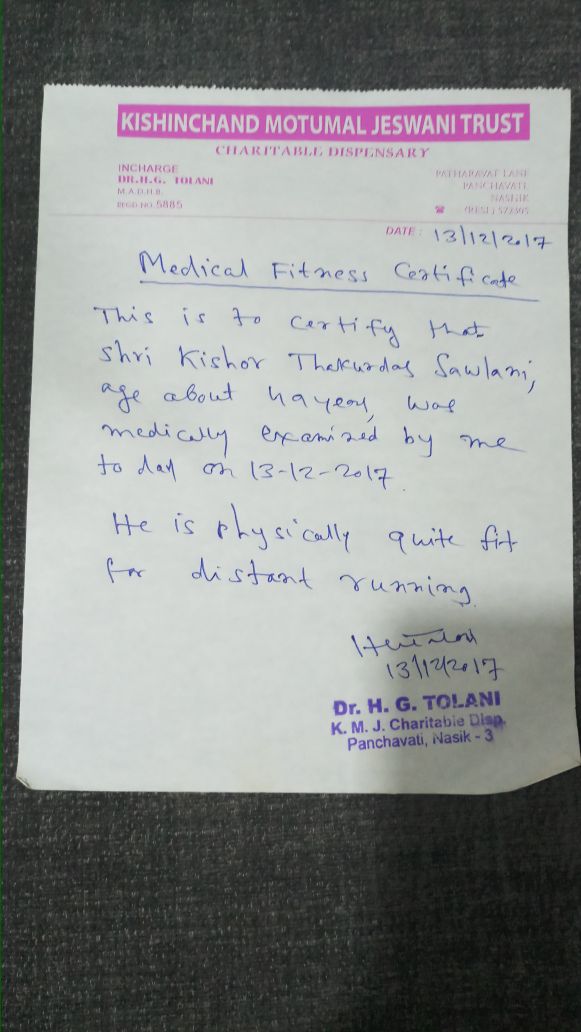 KISHINCHAND MOTUMAL JESWANI TRUST
CHARITABLE DISPENSARY
INCHARGE
DR.H.G. TOLANI
M.A.D.H.B.
REGD.NO. 5885
PATHARAVAT LANE
PANCHAVATI,
NASHIK
☎ (RESI.) 572305
DATE : 13/12/2017
Medical Fitness Certificate
This is to certify that
Shri Kishor Thakurdas Sawlani,
age about 49 years, was
medically examined by me
to day on 13-12-2017.
He is physically quite fit
for distant running.
13/12/2017
Dr. H. G. TOLANI
K. M. J. Charitable Disp.
Panchavati, Nasik - 3